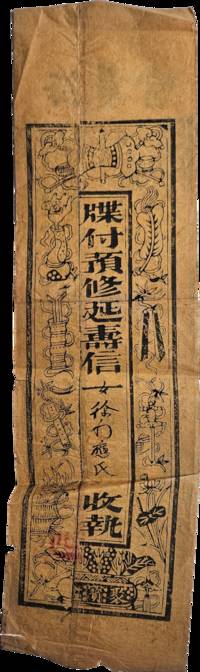 牒付預修延壽信女徐门氏收執